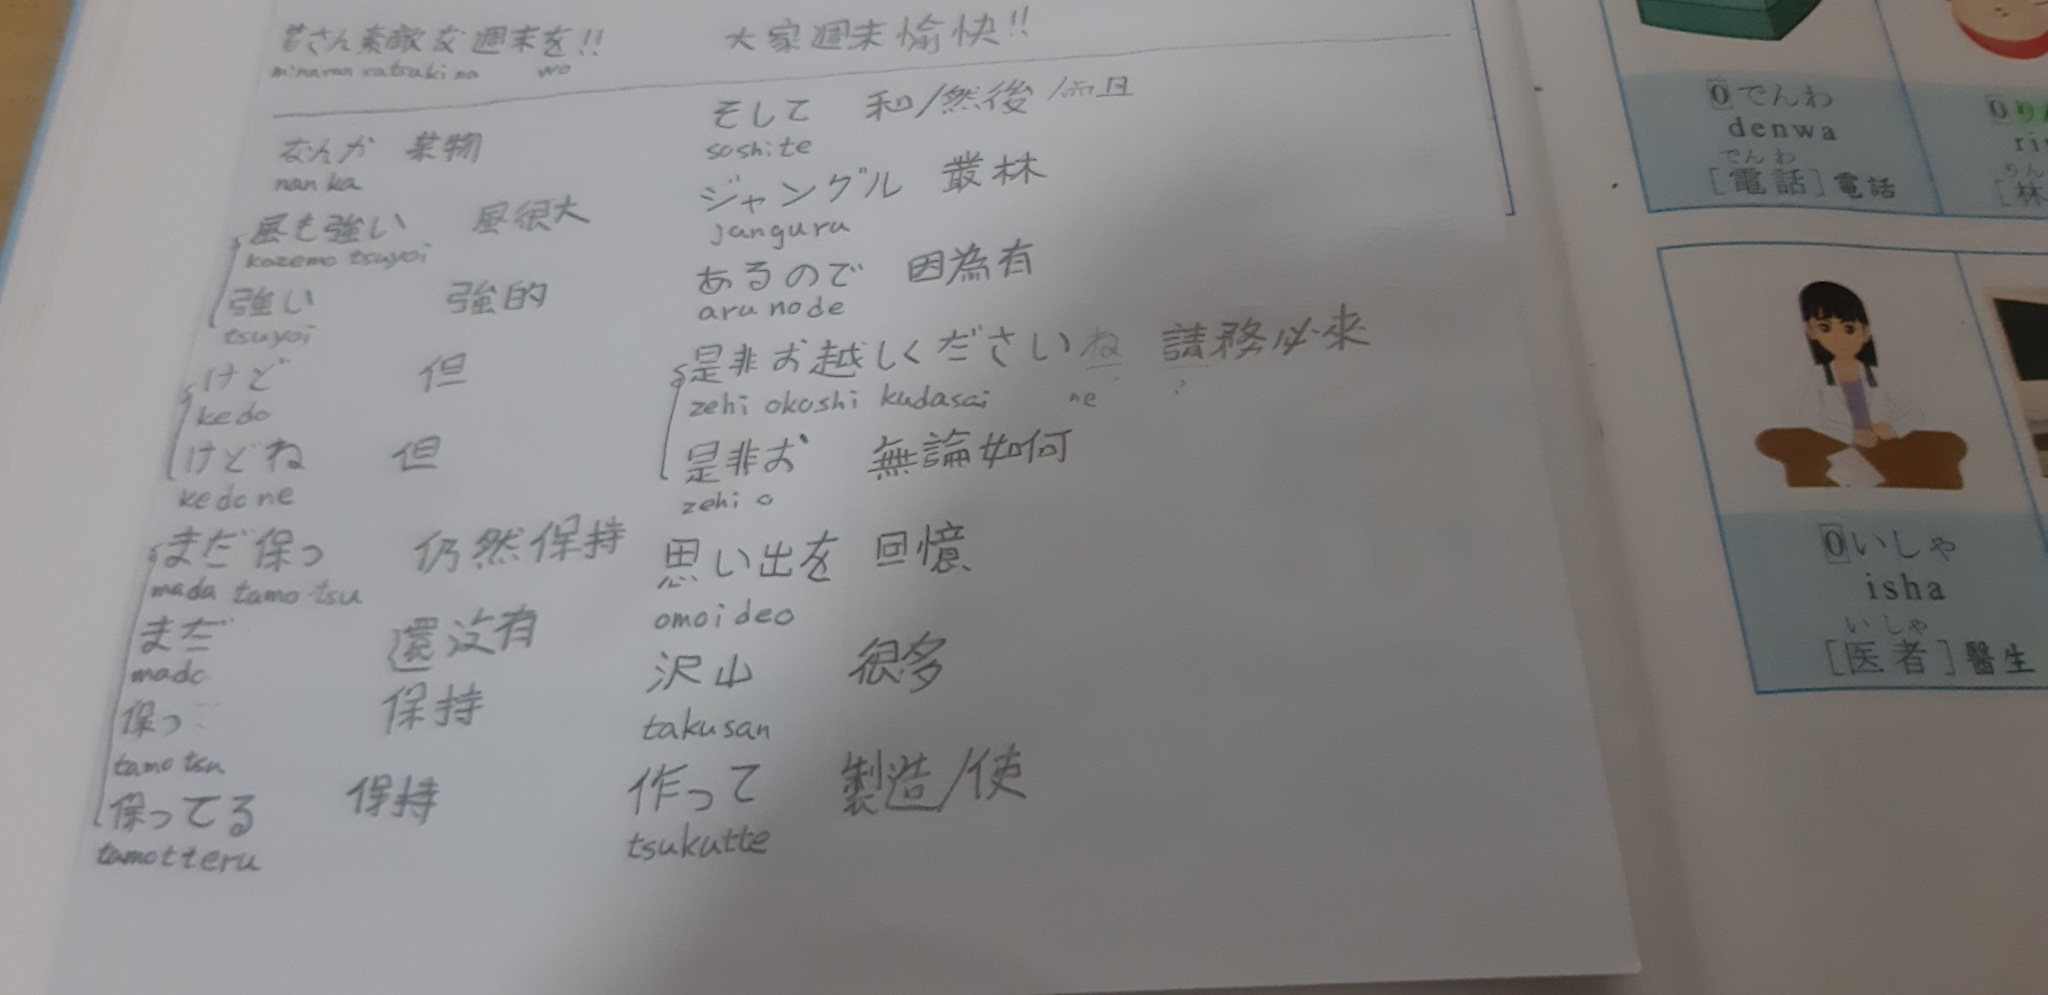 皆さん素敵な週末を!! 大家週末愉快!!
minasan sutekina wo
なんか 某物
nanka
風も強い 風很大
kazemo tsuyoi
強い 強的
tsuyoi
けど 但
kedo
けどね 但
kedo ne
まだ保つ 仍然保持
mada tamo tsu
まだ 還没有
mada
保つ 保持
tamo tsu
保ってる 保持
tamotteru
そして 和/然後/而且
soshite
ジャングル 叢林
janguru
あるので 因為有
aru node
是非お越しくださいね 請務必来
zehi okoshi kudasai ne ?
是非お 無論如何
zehi o
思い出を 回憶
omoideo
沢山 很多
takusan
作って 製造/使
tsukutte
0でんわ
denwa
でんわ
[電話]電話
0り
ri
りん
[林
0いしゃ
isha
いしゃ
[医者]醫生